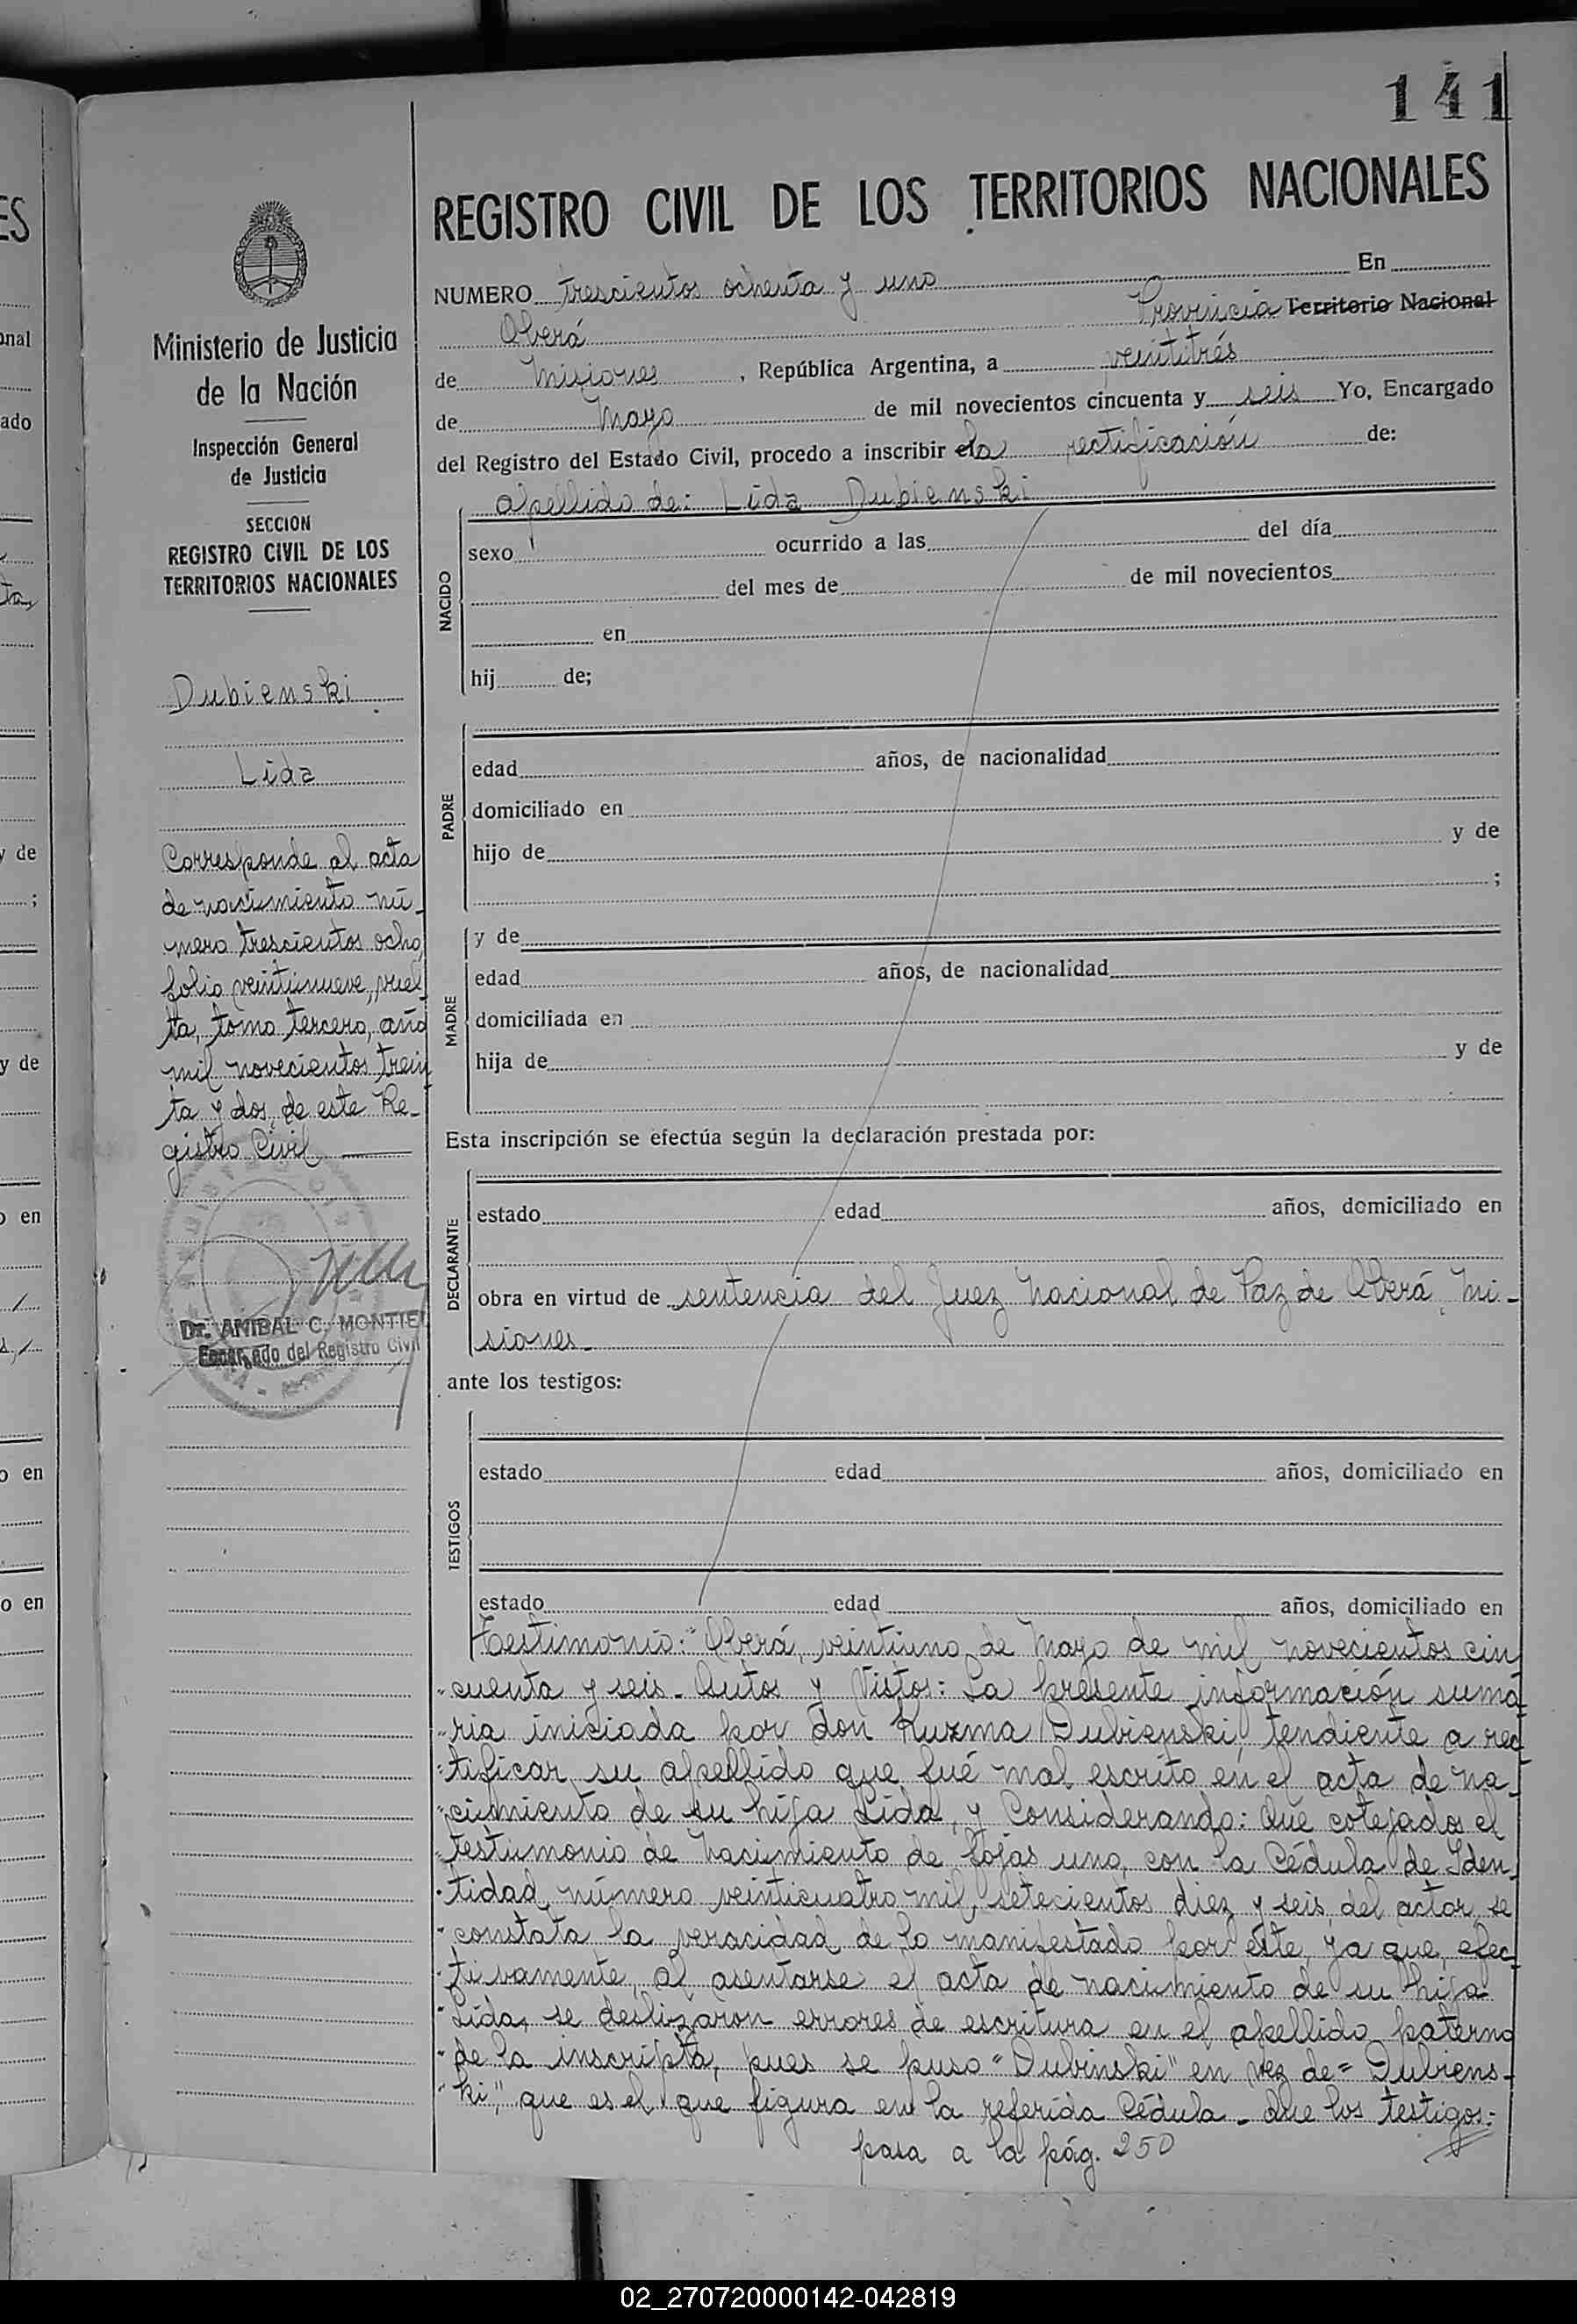 141
REGISTRO CIVIL DE LOS TERRITORIOS NACIONALES
NUMERO trescientos ochenta y uno En
Oberá Provincia Territorio Nacional
de Misiones, República Argentina, a veintitrés
de Mayo de mil novecientos cincuenta y seis Yo, Encargado
del Registro del Estado Civil, procedo a inscribir la rectificación de:
apellido de: Lida Dubienski
NACIDO
sexo ocurrido a las del día
del mes de de mil novecientos
en
hij de;
PADRE
edad años, de nacionalidad
domiciliado en
hijo de y de
;
MADRE
y de
edad años, de nacionalidad
domiciliada en
hija de y de
Esta inscripción se efectúa según la declaración prestada por:
DECLARANTE
estado edad años, domiciliado en
obra en virtud de sentencia del Juez Nacional de Paz de Oberá, Mi-
siones-
ante los testigos:
TESTIGOS
estado edad años, domiciliado en
estado edad años, domiciliado en
Testimonio: "Oberá, veintiuno de Mayo de mil novecientos cin
"cuenta y seis- Autos y Vistos: La presente información suma
"ria iniciada por don Kuzma Dubienski, tendiente a rec
"tificar su apellido que fué mal escrito en el acta de na
"cimiento de su hija Lida, y Considerando: Que cotejados el
"testimonio de nacimiento de fojas uno, con la Cédula de Iden
"tidad número veinticuatro mil setecientos diez y seis, del actor, se
"constata la veracidad de lo manifestado por éste, ya que, efec
"tivamente, al asentarse el acta de nacimiento de su hija
"Lida, se deslizaron errores de escritura en el apellido paterno
"de la inscripta, pues se puso "Dubinski" en vez de "Dubiens-
"ki", que es el que figura en la referida Cédula- Que los testigos:
pasa a la pág. 250
Ministerio de Justicia
de la Nación
Inspección General
de Justicia
SECCION
REGISTRO CIVIL DE LOS
TERRITORIOS NACIONALES
Dubienski
Lida
Corresponde al acta
de nacimiento nú-
mero trescientos ocho,
folio veintinueve, vuel-
ta, tomo tercero, año
mil novecientos trein
ta y dos, de este Re-
gistro Civil
Dr. ANIBAL C. MONTIEL
Encargado del Registro Civil
ES
onal
ado
y de
;
y de
o en
o en
o en
02_270720000142-042819